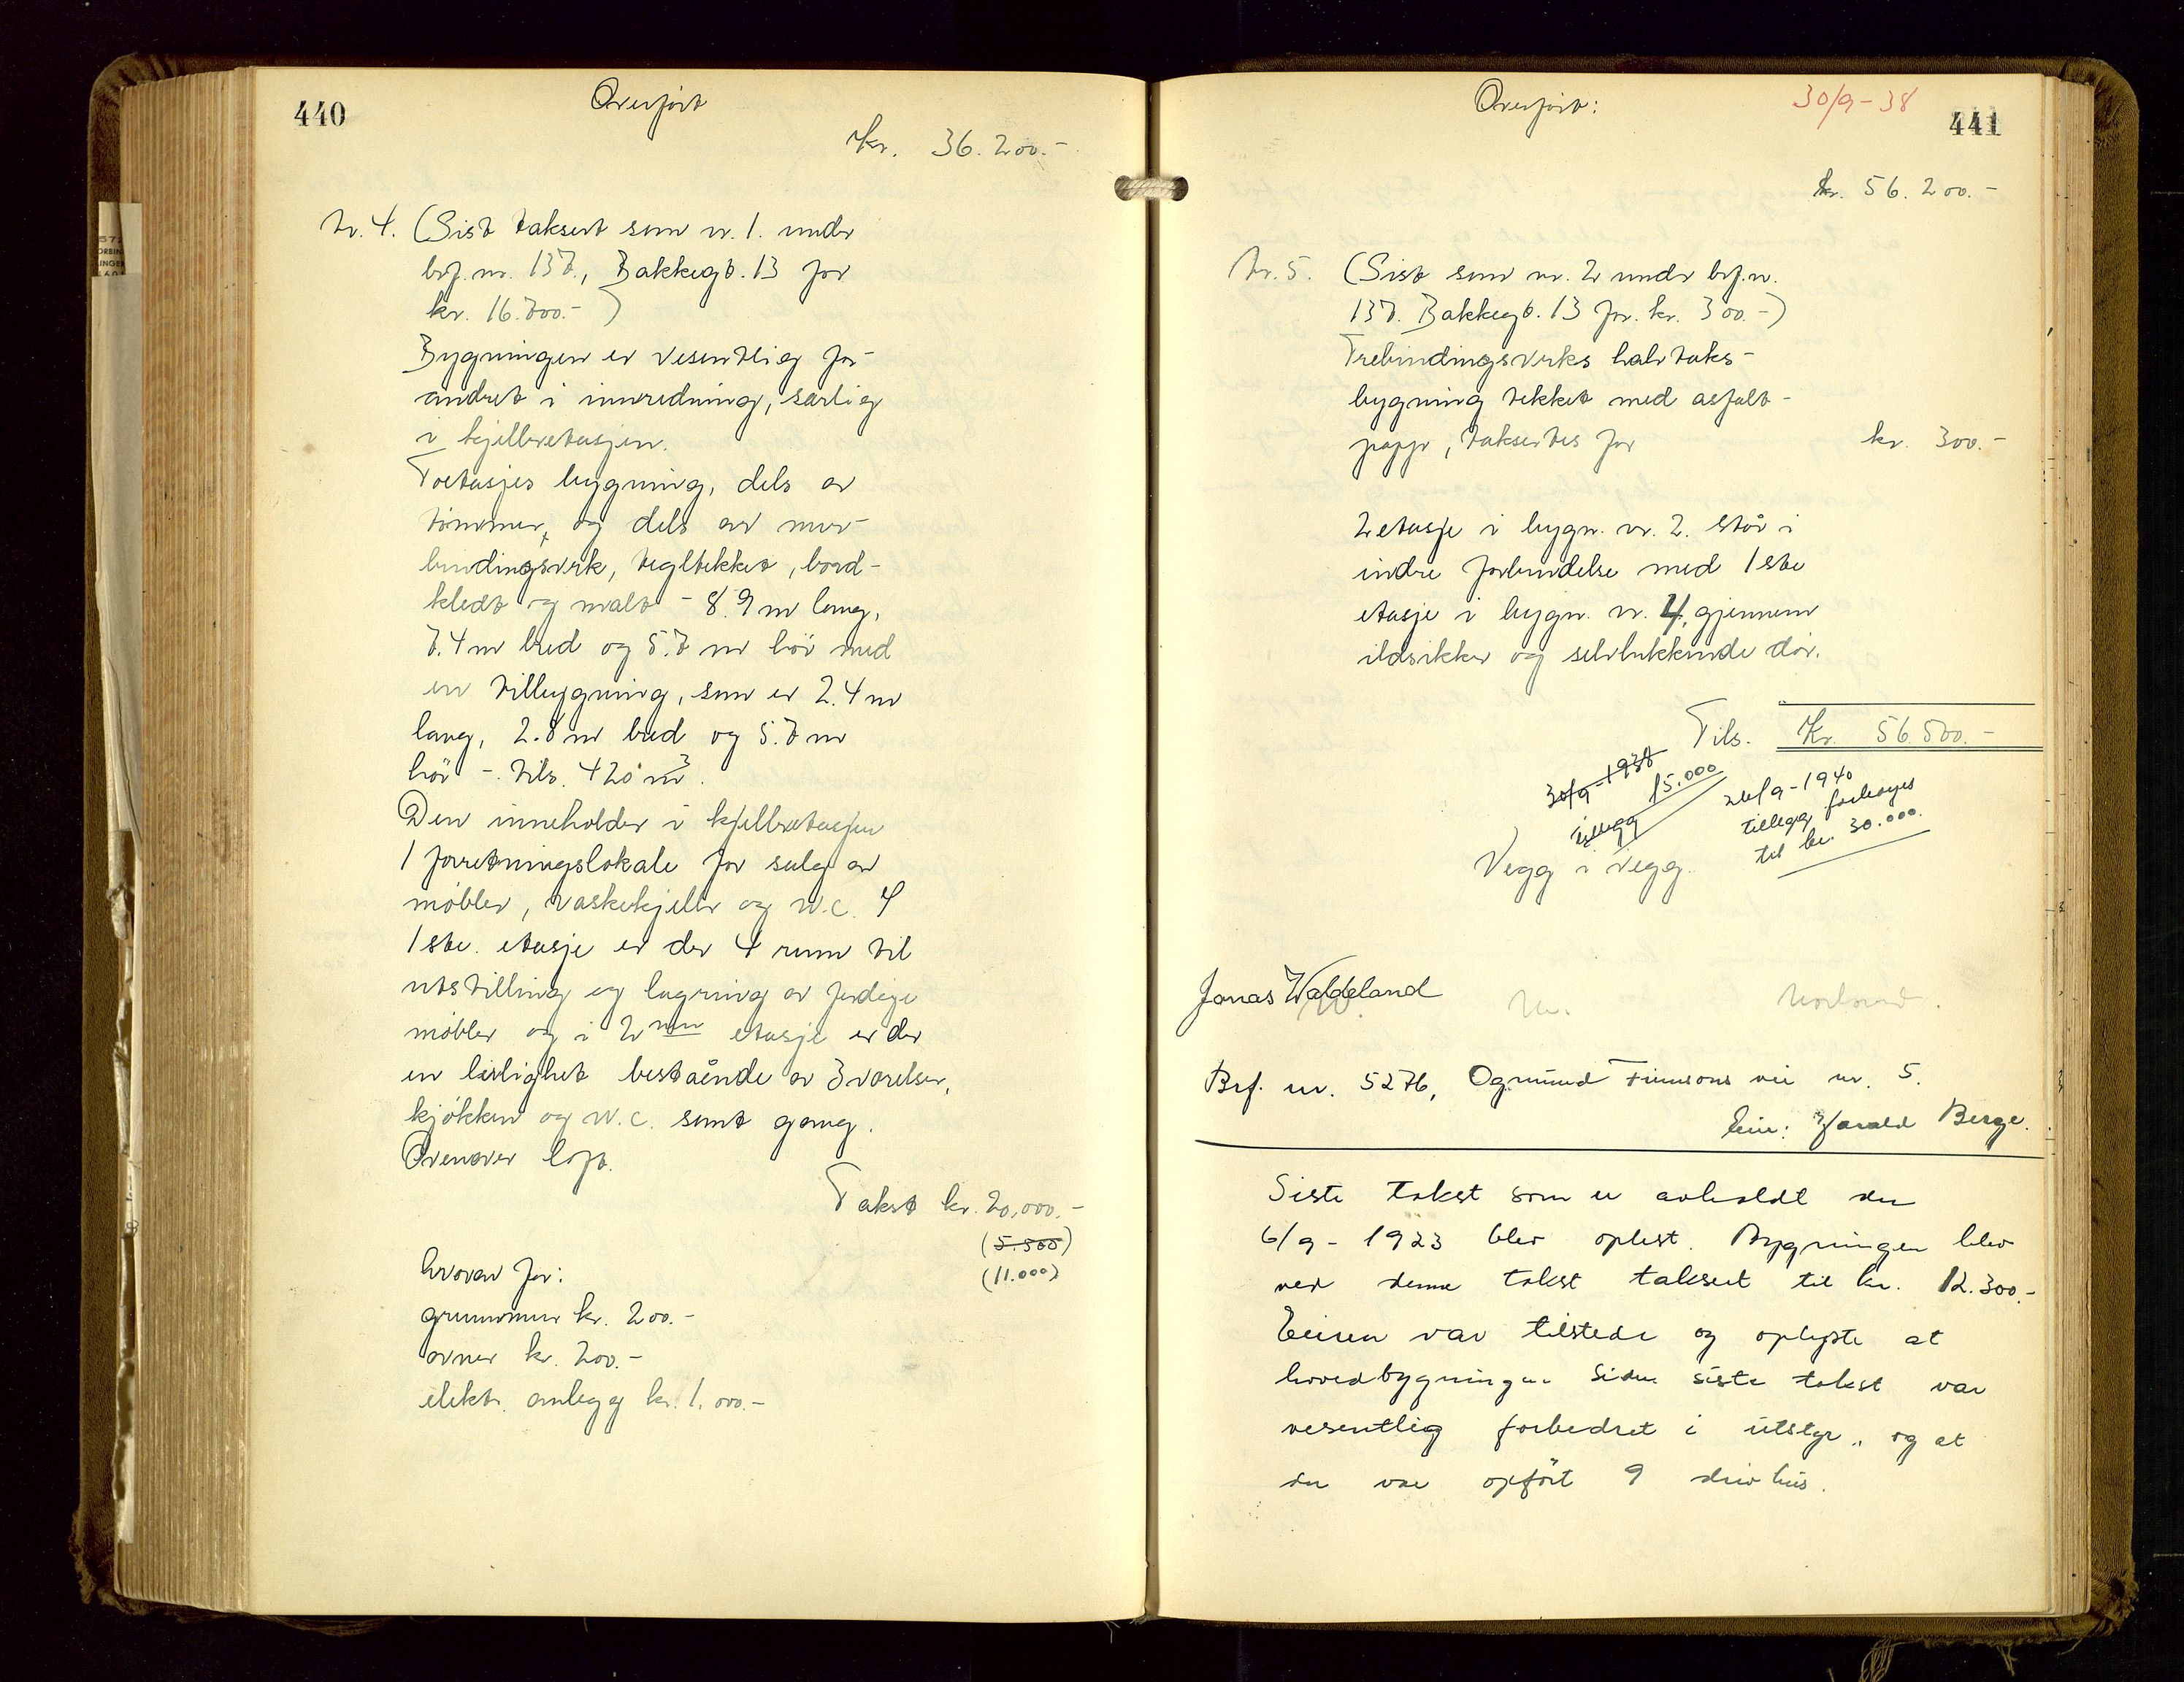 440
Overført
Kr. 36.200.-
Nr. 4. (Sist taksert som nr. 1. under
brf. nr. 137., Bakkegt. 13 for
kr. 16.700.- )
Bygningen er vesentlig for-
andret i innredning, særlig
i kjelleretasjen.
Toetasjes bygning, dels av
tømmer, og dels av mur-
bindingsverk, tegltekket, bord-
kledt og malt - 8.9 m lang,
7.4 m bred og 5.7 m høi med
en tilbygning, som er 2.4 m
lang, 2.8 m bred og 5.7 m
høi - tils. 420 m³.
Den inneholder i kjelleretasjen
1 forretningslokale for salg av
møbler, vaskekjeller og W.C. I
1ste. etasje er der 4 rum til
utstilling og lagring av ferdige
møbler og i 2nen etasje er der
en leilighet bestående av 3 værelser,
kjøkken og W.C. samt gang.
Ovenover loft.
Takst kr. 20,000.-
(5.500)
(11.000)
hvorav for:
grunnmur kr. 200.-
ovner kr. 200.-
elektr. anlegg kr. 1,000.-
Overført:
30/9-38
441
kr. 56.200.-
Nr. 5. (Sist som nr. 2 under brf. nr.
137. Bakkegt. 13 for kr. 300.-)
Trebindingsverks halvtaks-
bygning tekket med asfalt-
papp, taksertes for kr. 300.-
2 etasje i bygn. nr. 2. står i
indre forbindelse med 1ste
etasje i bygn. nr. 4, gjennem
ildsikker og selvlukkende dør.
Tils. Kr. 56.500.-
30/9-1938
tillegg 15.000
26/9-1940
tillegg forhøyes
til kr. 30.000.
Vegg i vegg.
Jonas Waldeland
Brf. nr. 5276, Ogmund Finnsons vei nr. 5.
Eier: Harald Berge.
Siste takst som er avholdt den
6/9-1923 blev oplest. Bygningen blev
ved denne takst taksert til kr. 12.300.-
Eieren var tilstede og oplyste at
hovedbygningen siden siste takst var
vesentlig forbedret i utstyr, og at
der var opført 9 drivhus.